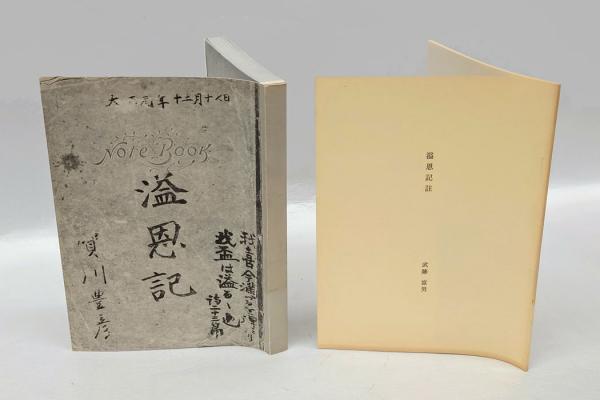 大正元年十二月十八日
Note Book
溢恩記
賀川豊彦
我盃は溢るゝ也
詩二十三篇
溢恩記註
武藤富男